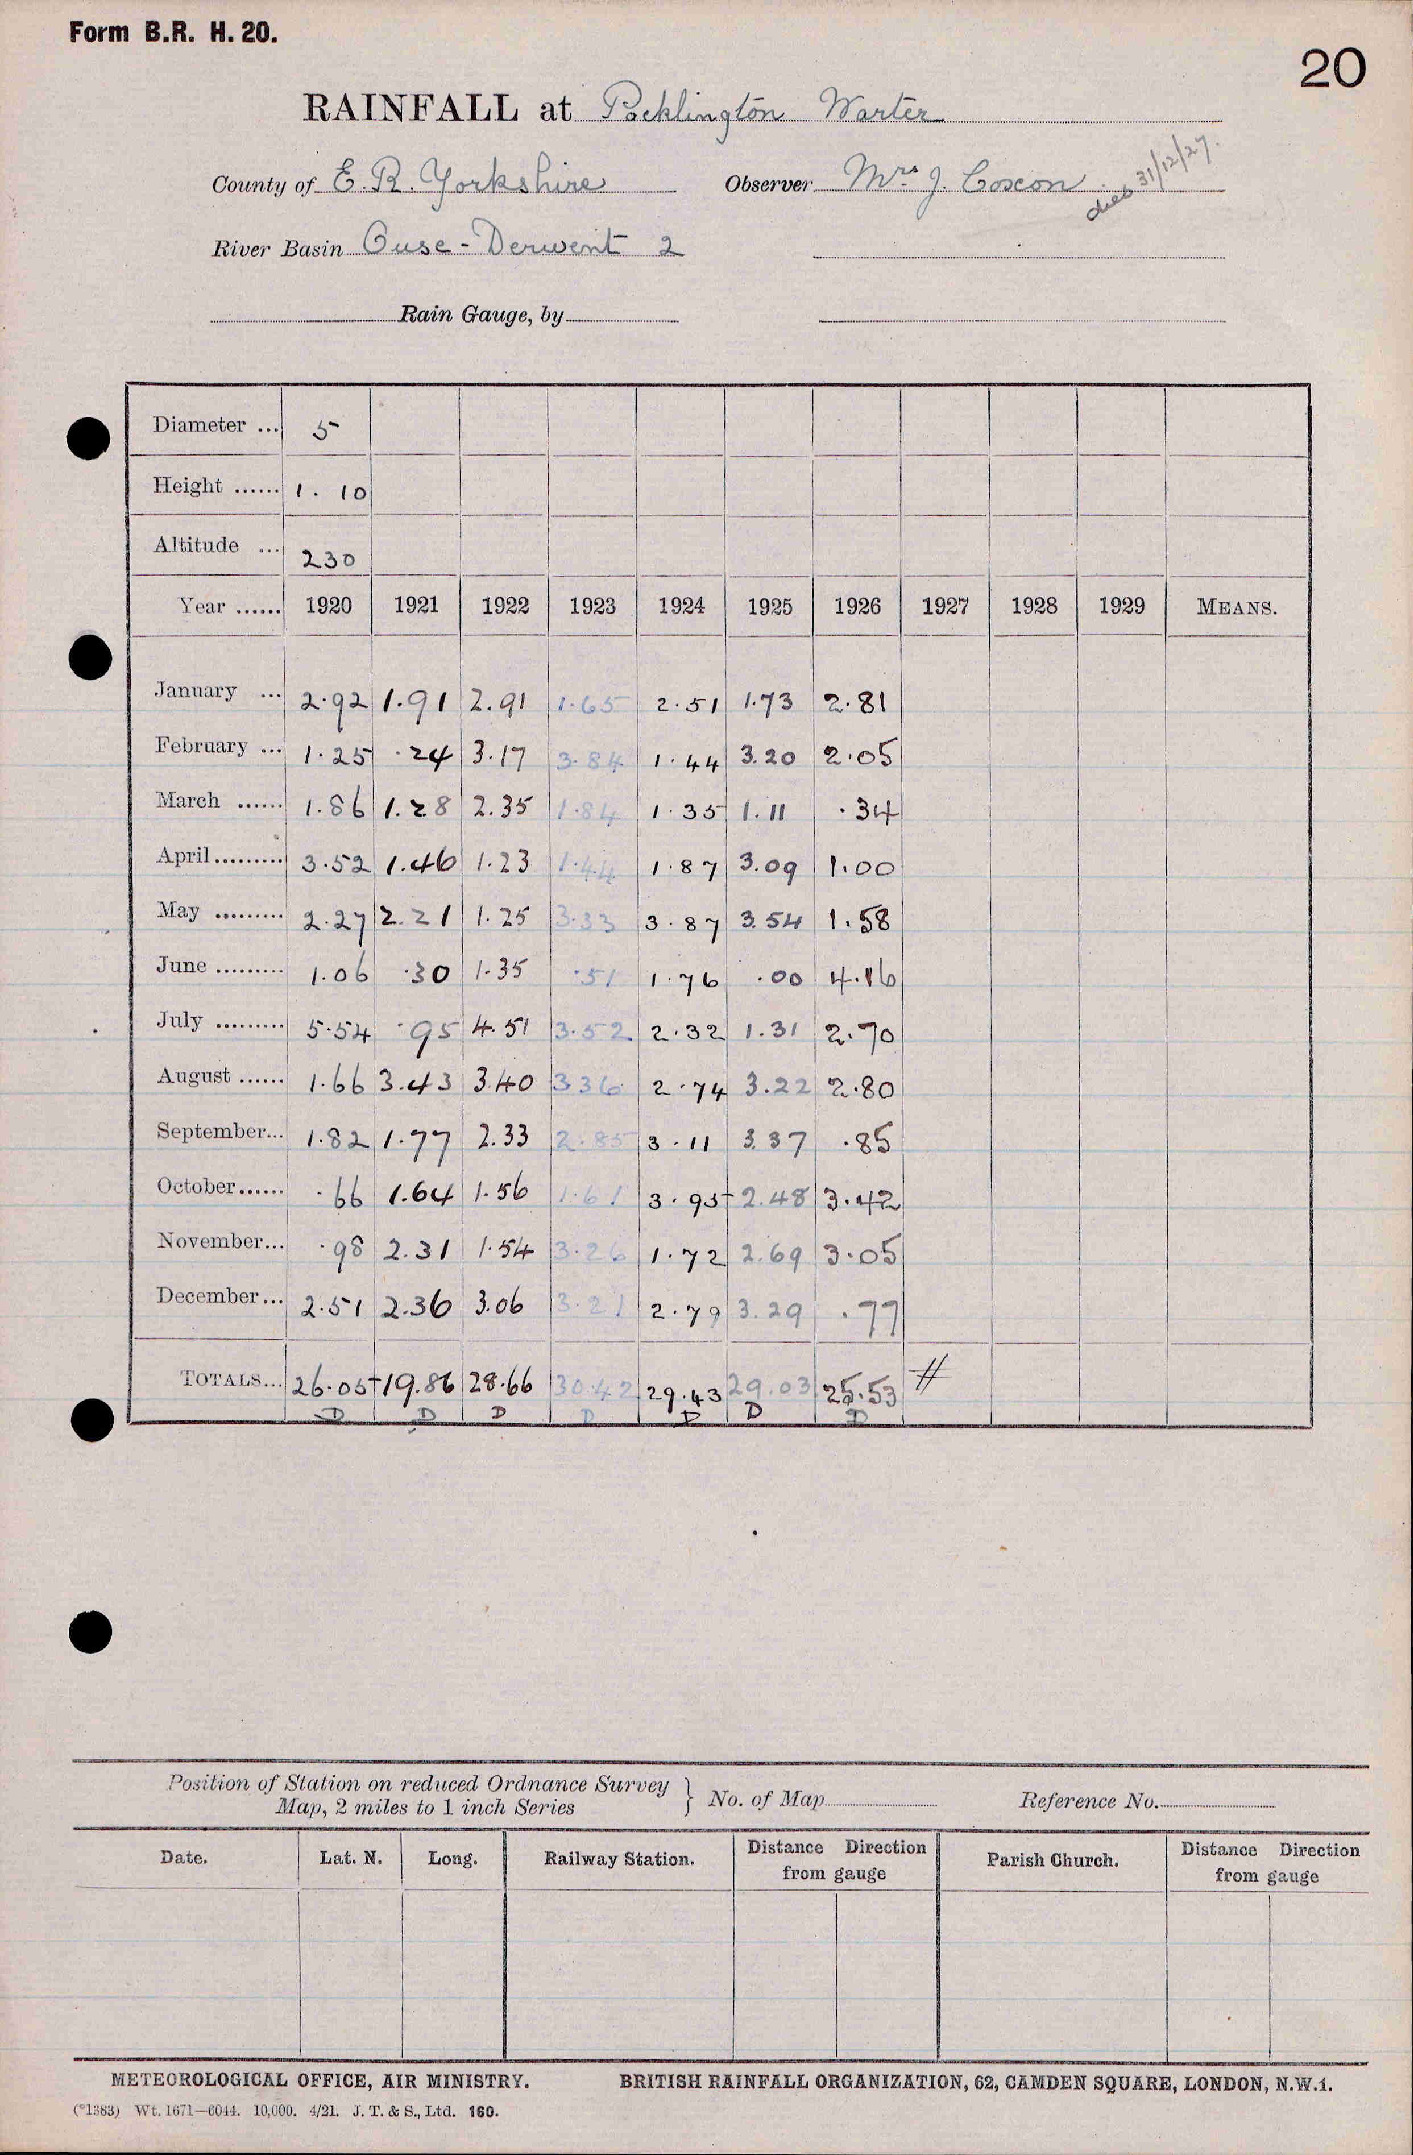 Form B.R. H. 20.
20
RAINFALL at Pocklington Warter
County of E. R. Yorkshire Observer Mrs J. Coxon died 31/12/27.
River Basin Ouse - Derwent 2
Rain Gauge, by
Diameter ... 5
Height ...... 1. 10
Altitude ... 230
Year ...... 1920 1921 1922 1923 1924 1925 1926 1927 1928 1929 MEANS.
January ... 2.92 1.91 2.91 1.65 2.51 1.73 2.81
February ... 1.25 .24 3.17 3.84 1.44 3.20 2.05
March ...... 1.86 1.28 2.35 1.84 1.35 1.11 .34
April ......... 3.52 1.46 1.23 1.44 1.87 3.09 1.00
May ......... 2.27 2.21 1.25 3.33 3.87 3.54 1.58
June ......... 1.06 .30 1.35 .51 1.76 .00 4.16
July ......... 5.54 .95 4.51 3.52 2.32 1.31 2.70
August ...... 1.66 3.43 3.40 3.36 2.74 3.22 2.80
September... 1.82 1.77 2.33 2.85 3.11 3.37 .85
October...... .66 1.64 1.56 1.61 3.95 2.48 3.42
November... .98 2.31 1.54 3.26 1.72 2.69 3.05
December... 2.51 2.36 3.06 3.21 2.79 3.29 .77
TOTALS... 26.05 19.86 28.66 30.42 29.43 29.03 25.53 #
D D D D D D D
Position of Station on reduced Ordnance Survey
Map, 2 miles to 1 inch Series } No. of Map Reference No.
Date. Lat. N. Long. Railway Station. Distance Direction from gauge Parish Church. Distance Direction from gauge
METEOROLOGICAL OFFICE, AIR MINISTRY. BRITISH RAINFALL ORGANIZATION, 62, CAMDEN SQUARE, LONDON, N.W.1.
(*1383) Wt. 1671—6044. 10,000. 4/21. J. T. & S., Ltd. 160.